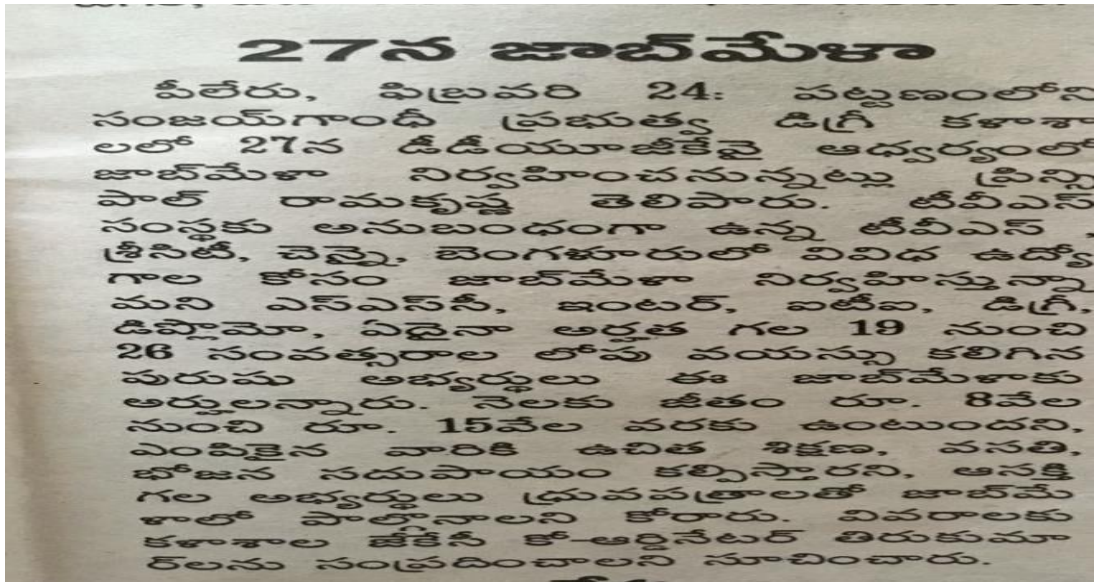 27న జాబ్‌మేళా
పీలేరు, ఫిబ్రవరి 24: పట్టణంలోని
సంజయ్‌గాంధీ ప్రభుత్వ డిగ్రీ కళాశా
లలో 27న డీడీయూజీకేవై ఆధ్వర్యంలో
జాబ్‌మేళా నిర్వహించనున్నట్లు ప్రిన్సి
పాల్ రామకృష్ణ తెలిపారు. టీవీఎస్
సంస్థకు అనుబంధంగా ఉన్న టీవీఎస్ ,
శ్రీసిటీ, చెన్నై, బెంగళూరులో వివిధ ఉద్యో
గాల కోసం జాబ్‌మేళా నిర్వహిస్తున్నా
మని ఎస్ఎస్‌సీ, ఇంటర్, ఐటీఐ, డిగ్రీ,
డిప్లొమో, ఏదైనా అర్హత గల 19 నుంచి
26 సంవత్సరాల లోపు వయస్సు కలిగిన
పురుషు అభ్యర్థులు ఈ జాబ్‌మేళాకు
అర్హులన్నారు. నెలకు జీతం రూ. 8వేల
నుంచి రూ. 15వేల వరకు ఉంటుందని,
ఎంపికైన వారికి ఉచిత శిక్షణ, వసతి,
భోజన సదుపాయం కల్పిస్తారని, ఆసక్తి
గల అభ్యర్థులు ధ్రువపత్రాలతో జాబ్‌మే
ళాలో పాల్గొనాలని కోరారు. వివరాలకు
కళాశాల జేకేసీ కో-ఆర్డినేటర్ తిరుకుమా
ర్‌లను సంప్రదించాలని సూచించారు.